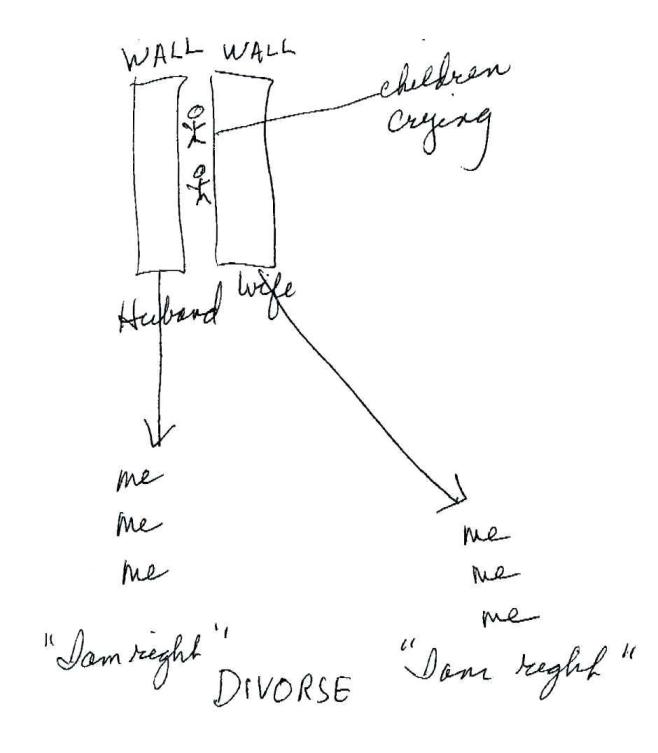 WALL WALL
children
crying
Huband
wife
me
me
me
me
me
me
"I am right"
"I am right"
DIVORSE